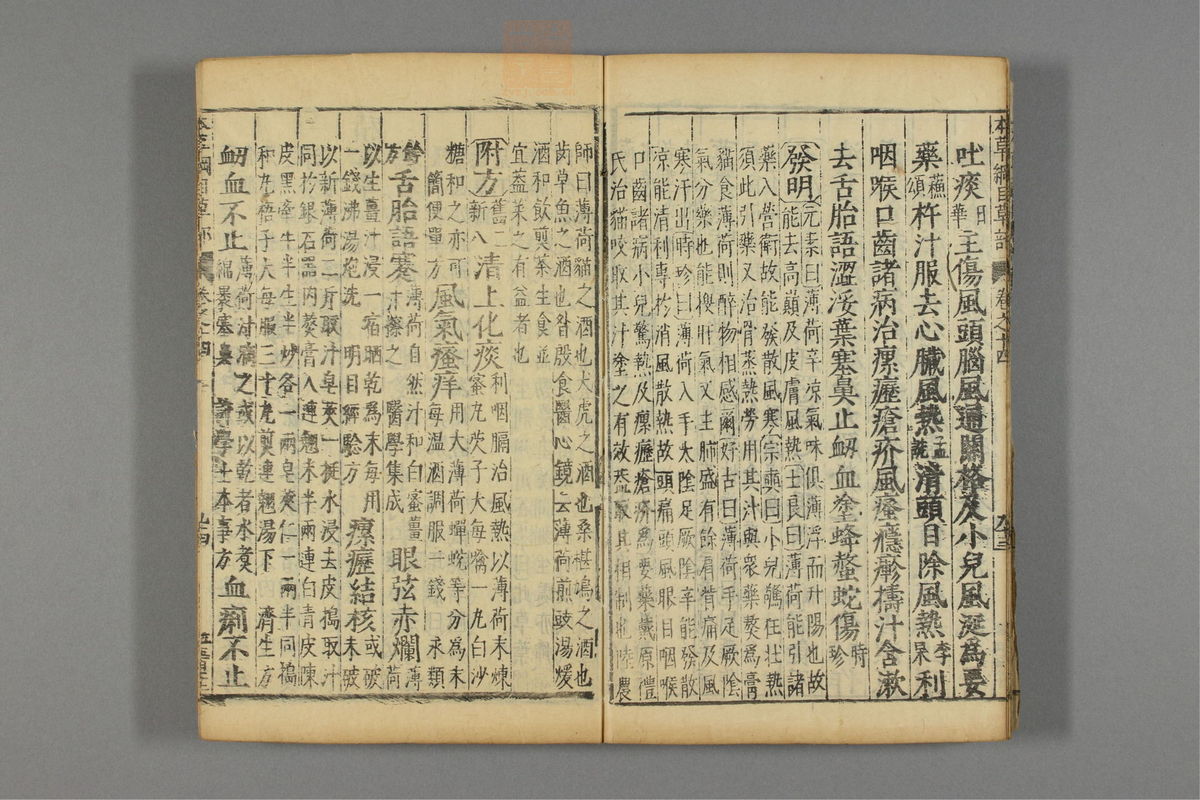 本草綱目草部 卷之十四 九十三
吐痰日華主傷風頭腦風通關格及小兒風涎為要
藥蘇頌杵汁服去心臟風熱孟詵清頭目除風熱李杲利
咽喉口齒諸病治瘰癧瘡疥風瘙癮𤺋擣汁含漱
去舌胎語澀挼葉塞鼻止衂血塗蜂螫蛇傷時珍
發明元素曰薄荷辛凉氣味俱薄浮而升陽也故
能去高巔及皮膚風熱士良曰薄荷能引諸
藥入營衛故能發散風寒宗奭曰小兒驚狂壯熱
須此引藥又治骨蒸熱勞用其汁與衆藥熬為膏
貓食薄荷則醉物相感爾好古曰薄荷手足厥陰
氣分藥也能搜肝氣又主肺盛有餘肩背痛及風
寒汗出時珍曰薄荷入手太陰足厥陰辛能發散
凉能清利專於消風散熱故頭痛頭風眼目咽喉
口齒諸病小兒驚熱及瘰癧瘡疥為要藥戴原禮
氏治貓咬取其汁塗之有效蓋取其相制也陸農
師曰薄荷貓之酒也犬虎之酒也桑椹鳩之酒也
茵草魚之酒也昝殷食醫心鏡云薄荷煎豉湯煖
酒和飲煎茶生食並
宜蓋菜之有益者也
附方舊二新八清上化痰利咽膈治風熱以薄荷末煉
蜜丸芡子大每噙一丸白沙
糖和之亦可簡便單方風氣瘙痒用大薄荷蟬蛻等分為末
每温酒調服一錢永類
鈐方舌胎語蹇薄荷自然汁和白蜜薑
汁擦之 醫學集成眼弦赤爛薄荷
以生薑汁浸一宿晒乾為末每用
一錢沸湯炮洗 明目經驗方瘰癧結核或破未破
以新薄荷二斤取汁皂莢一挺水浸去皮搗取汁
同於銀石器內熬膏入連翹末半兩連白青皮陳
皮黑牽牛半生半炒各一兩皂莢仁一兩半同搗
和丸梧子大每服三十丸煎連翹湯下 濟生方
衂血不止薄荷汁滴之或以乾者水煑
綿裹塞鼻 許學士本事方血痢不止
本草綱目草部 卷之十四 九十四